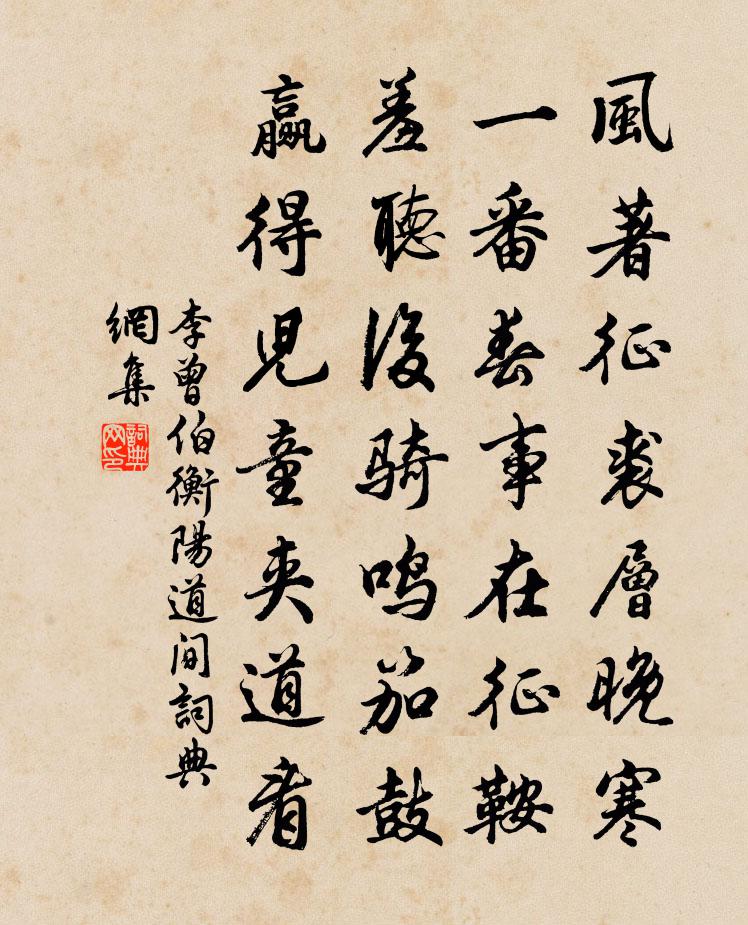 風著征裘層晚寒
一番春事在征鞍
羞聽後騎鳴笳鼓
贏得児童夾道看
李曾伯衡陽道間詞典
網集
詞典
网印